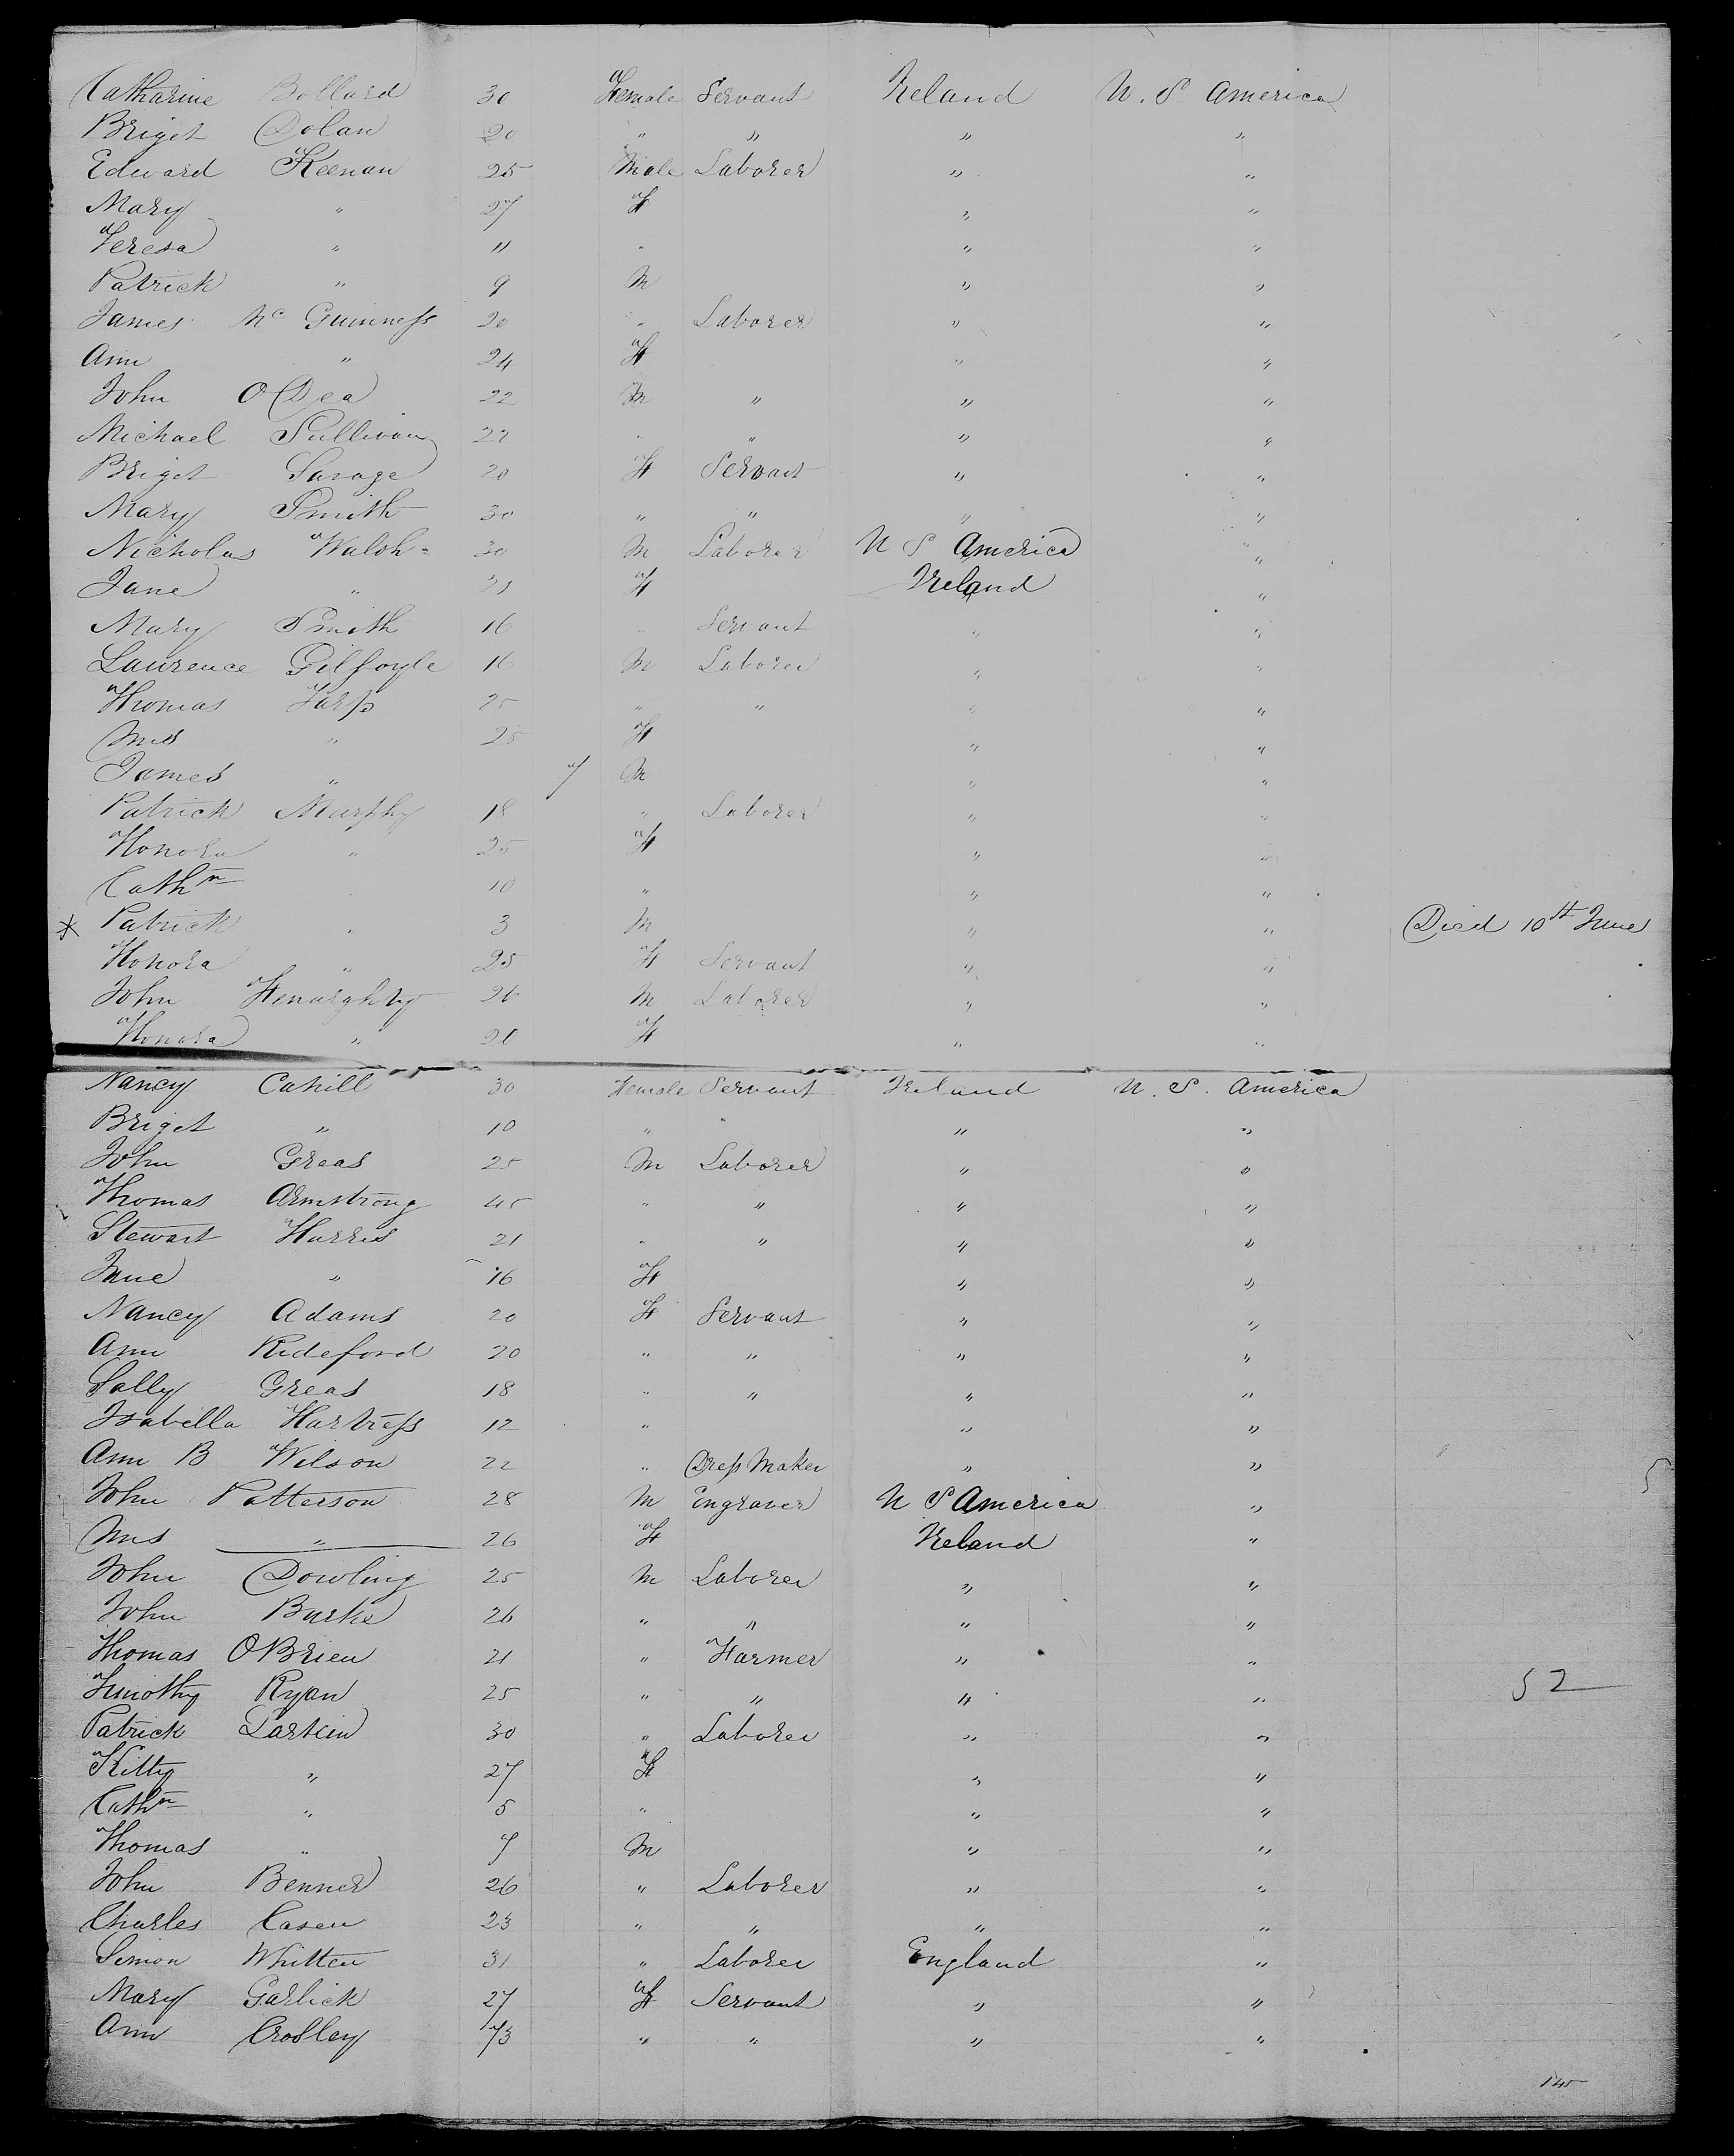 Catharine Bollard 30 Female Servant Ireland U. S America
Briget Dolan 20 " " " "
Edward Keenan 25 Male Laborer " "
Mary " 27 F " "
Teresa " 11 " " "
Patrick " 9 M " "
James Mc Guinness 20 " Laborer " "
Ann " 24 F " "
John O Dea 22 M " " "
Michael Sullivan 22 " " " "
Briget Savage 20 F Servant " "
Mary Smith 30 " " " "
Nicholas Walsh 30 M Laborer U S America "
Jane " F Ireland "
Mary Smith 16 " Servant " "
Laurence Gilfoyle 16 M Laborer " "
Thomas 25 " " " "
Mrs " 25 F " "
James " 7 M " "
Patrick Murphy 18 " Laborer " "
Honora " 25 F " "
Cathn " 10 " " "
* Patrick " 3 M " " Died 10th June
Honora " 25 F Servant " "
John 26 M Laborer " "
Honora " 20 F " "
Nancy Cahill 30 Female Servant Ireland U. S. America
Briget " 10 " " "
John Greas 25 M Laborer " "
Thomas Armstrong 45 " " " "
Stewart Harris 21 " " " "
" 16 F " "
Nancy Adams 20 F Servant " "
Ann Rideford 20 " " " "
Sally Greas 18 " " " "
Isabella Hartress 12 " " "
Ann B Wilson 22 " Dress Maker " "
John Patterson 28 M Engraver U S America "
Mrs " 26 F Ireland "
John Dowling 25 M Laborer " "
John Burke 26 " " " "
Thomas OBrien 21 " Farmer " "
Timothy Ryan 25 " " " " 52
Patrick Larkin 30 " Laborer " "
Kitty " 27 F " "
Cathn " 5 " " "
Thomas " 7 M " "
John Benner 26 " Laborer " "
Charles Casen 23 " " " "
Simon Whitten 31 " Laborer England "
Mary Garlick 27 F Servant " "
Ann Crossley 73 " " " "
145